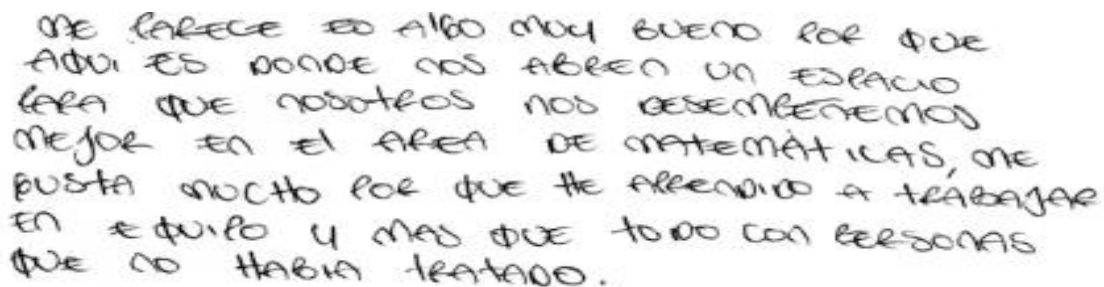 ME PARECE ES AlGO MUY BUENO POR QUE
AQUI ES DONDE NOS ABREN UN ESPACIO
PARA QUE NOSOTROS NOS DESEMPEÑEMOS
MEJOR EN El AREA DE MATEMÁTICAS, ME
GUSTA MUCHO POR QUE HE APRENDIDO A TRABAJAR
EN EQUIPO Y MAS QUE TODO CON PERSONAS
QUE NO HABIA TRATADO.